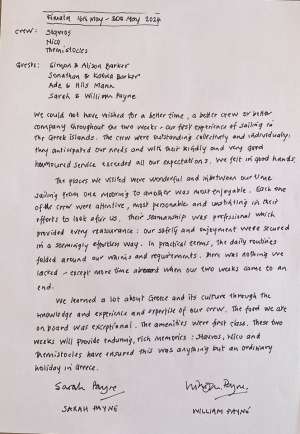 16th May - 30th May 2024
Crew: Stavros
Nico
Themistocles
Guests: Simon & Alison Barker
Jonathan & Barker
Ade & Hils Mann
Sarah & William Payne
We could not have wished for a better time, a better crew or better
company throughout the two weeks - our first experience of sailing in
the Greek islands. The crew were outstanding collectively and individually:
they anticipated our needs and with their kindly and very good
humoured service exceeded all our expectations. We felt in good hands.
The places we visited were wonderful and in between our time
sailing from one mooring to another was most enjoyable. Each one
of the crew were attentive, most personable and unstinting in their
efforts to look after us, their seamanship was professional which
provided every reassurance: our safety and enjoyment were secured
in a seemingly effortless way. In practical terms, the daily routines
folded around our and requirements. There was nothing we
lacked - except more time when our two weeks came to an
end.
We learned a lot about Greece and its culture through the
knowledge and experience and expertise of our crew. The food we ate
on board was exceptional. The amenities were first class. These two
weeks will provide enduring, rich memories: Stavros, Nico and
Themistocles have ensured this was anything but an ordinary
holiday in Greece.
Sarah Payne
William Payne
SARAH PAYNE
WILLIAM PAYNE